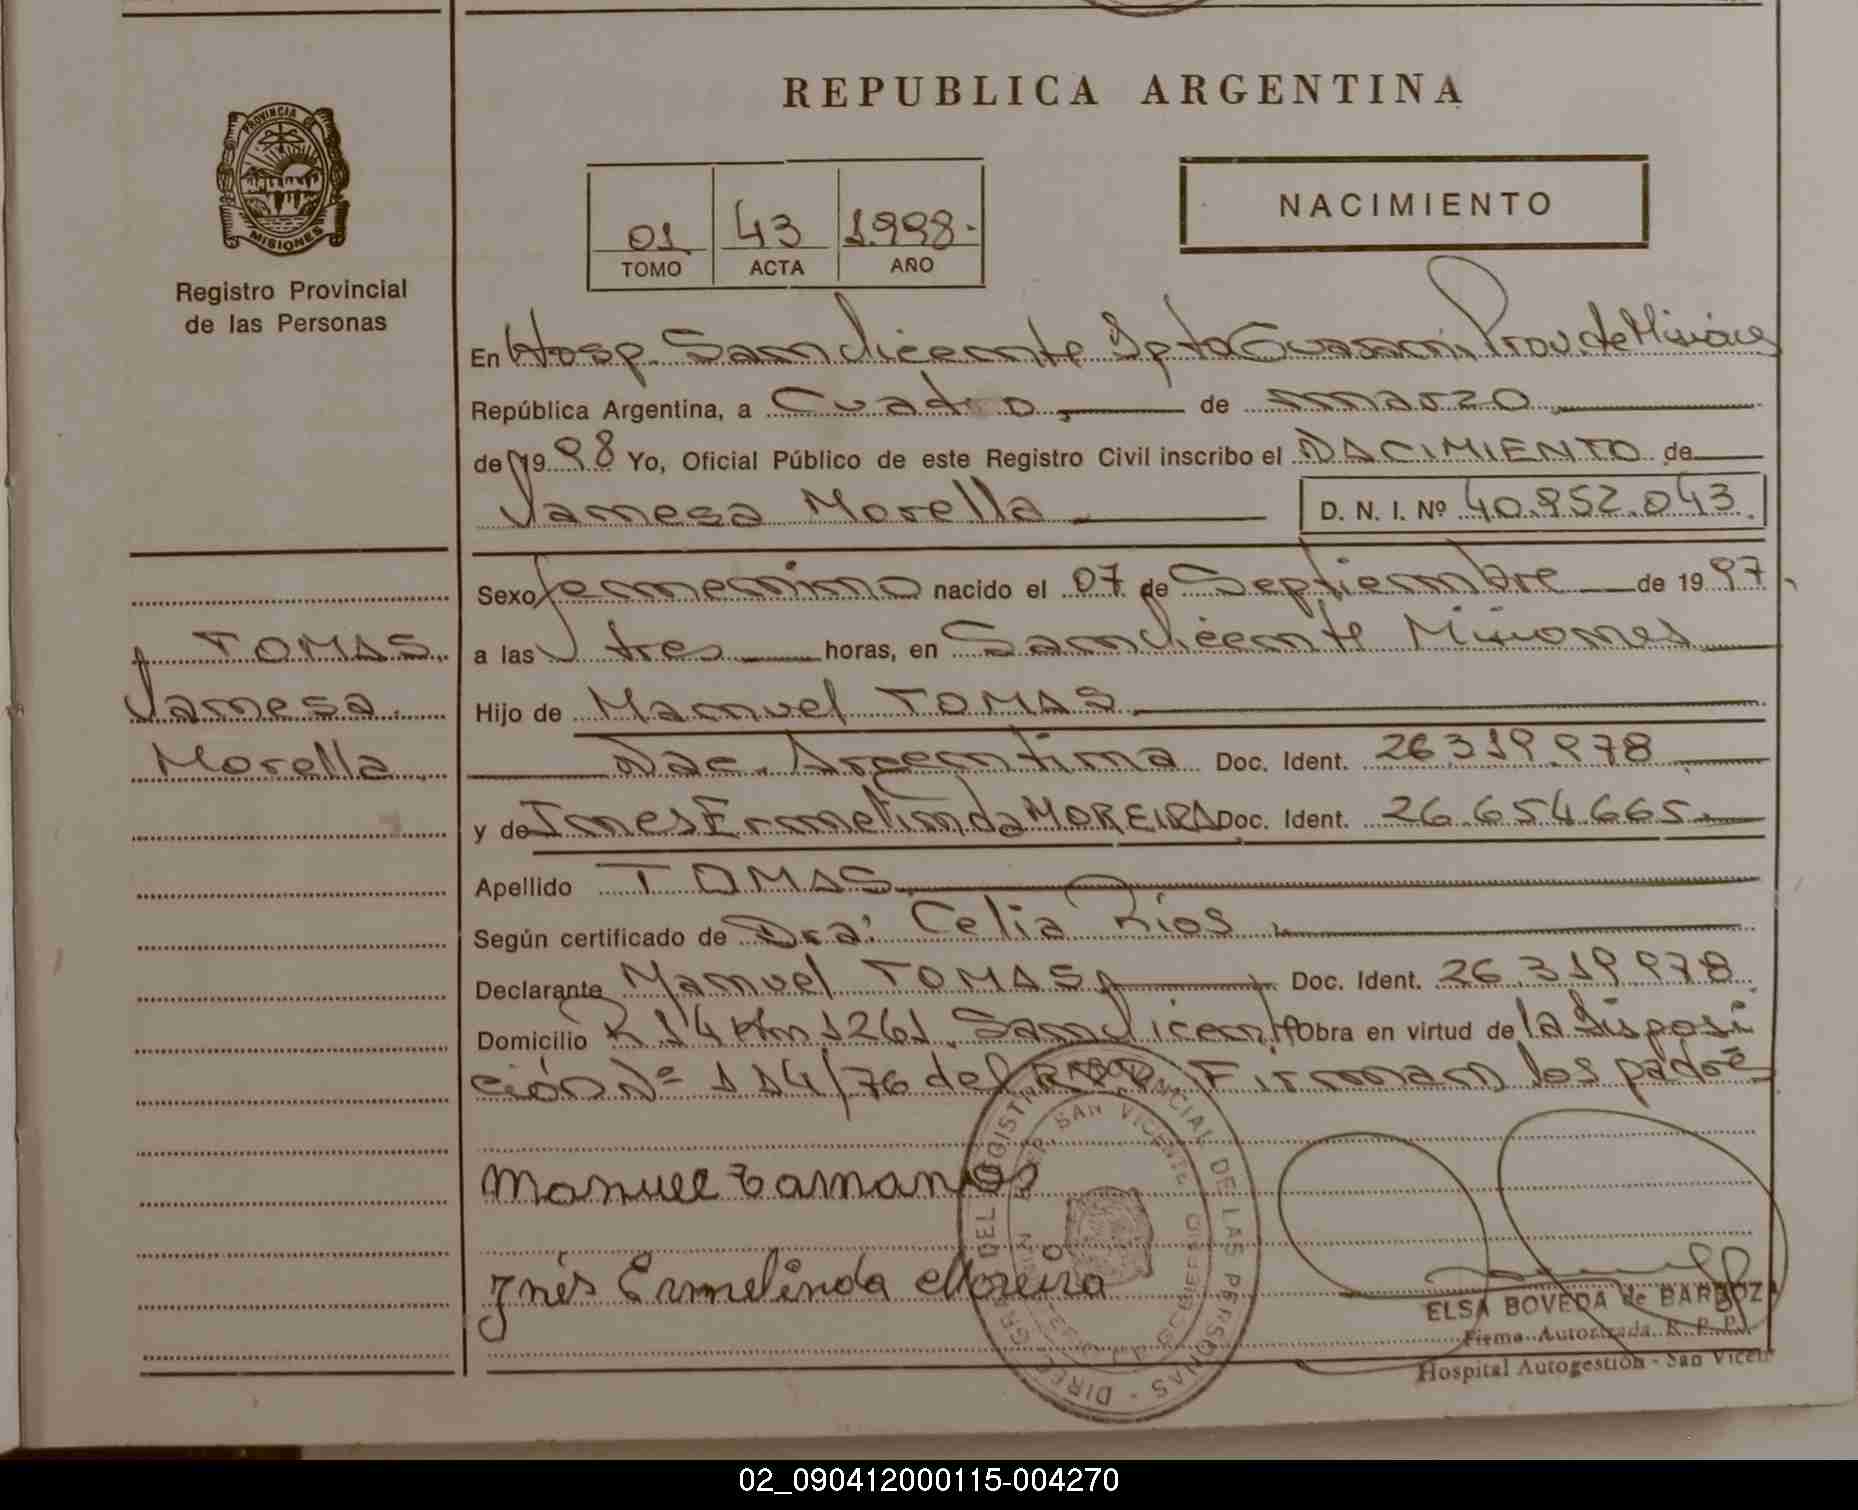 REPUBLICA ARGENTINA
PROVINCIA DE
MISIONES
Registro Provincial
de las Personas
01 43 1998.-
TOMO ACTA AÑO
NACIMIENTO
En Hosp. San Vicente Dpto Guarani, Prov. de Misiones
República Argentina, a Cuatro, de marzo
de 1998 Yo, Oficial Público de este Registro Civil inscribo el NACIMIENTO de
Vanesa Morella D. N. I. Nº 40.952.043.
Sexo femenino nacido el 07 de Septiembre de 1997
a las tres horas, en San Vicente Misiones
Hijo de Manuel TOMAS
Nac. Argentina Doc. Ident. 26.319.978
y de Ines Ermelinda MOREIRA Doc. Ident. 26.654.665
Apellido TOMAS
Según certificado de Dra: Celia Rios
Declarante Manuel TOMAS Doc. Ident. 26.319.978
Domicilio R 14 Km 1261 San Vicente Obra en virtud de la Disposi
ción Nº 114/76 del R.P.P. Firman los padres
TOMAS,
Vanesa
Morella
Manuel
Inés Ermelinda Moreira
DEL REGISTRO PROVINCIAL DE LAS PERSONAS - DIREC
SAN VICENTE
ELSA BOVEDA de BARBOZA
Firma Autorizada R. P. P.
Hospital Autogestión - San Vicente
02_090412000115-004270